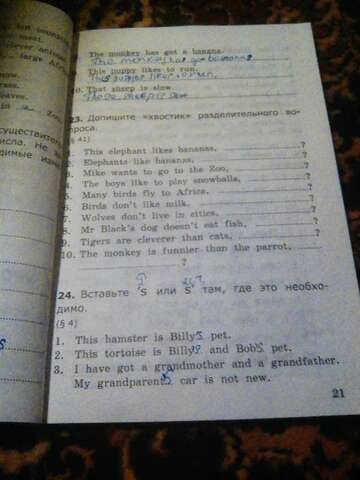 The monkey has got a banana.
The monkey has got
This puppy likes to run.
10. That sheep is slow.
23. Допишите «хвостик» разделительного во-
проса.
(§ 41)
1. This elephant likes bananas, ?
2. Elephants like bananas, ?
3. Mike wants to go to the Zoo, ?
4. The boys like to play snowballs, ?
5. Many birds fly to Africa, ?
6. Birds don't like milk, ?
7. Wolves don't live in cities, ?
8. Mr Black's dog doesn't eat fish, ?
9. Tigers are cleverer than cats, ?
10. The monkey is funnier than the parrot,
?
24. Вставьте 's или s' там, где это необхо-
димо.
(§ 4)
1. This hamster is Billy's pet.
2. This tortoise is Billy's and Bob's pet.
3. I have got a grandmother and a grandfather.
My grandparents car is not new.
21